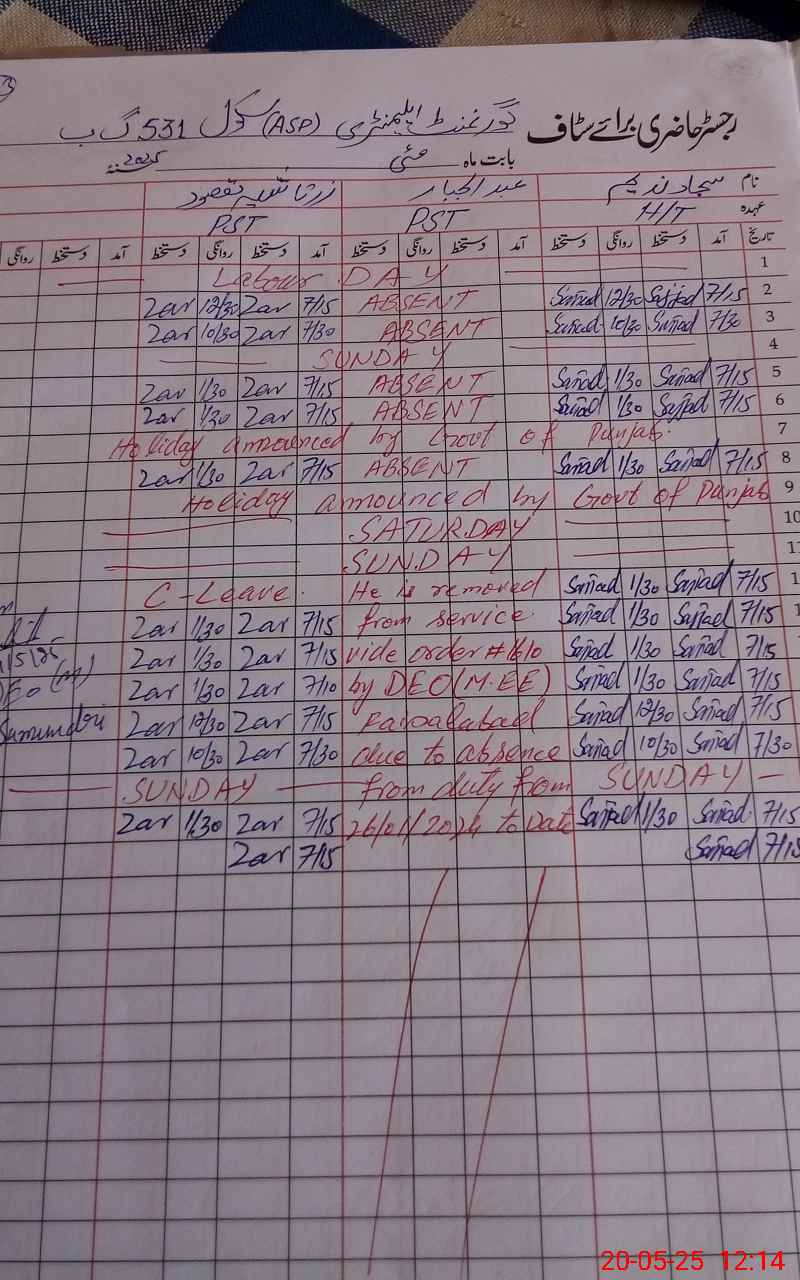 رجسٹر حاضری برائے سٹاف گورنمنٹ ایلیمنٹری (ASP) سکول 531 گ ب
بابت ماہ مئی 2025
نام سجاد ندیم عبدالجبار
عہدہ H/T PST PST
تاریخ آمد دستخط روانگی دستخط آمد دستخط روانگی دستخط آمد دستخط روانگی دستخط آمد دستخط روانگی
1 Labour DAY
2 7/15 Sajjad 12/30 Sajjad ABSENT 7/15 Zar 12/30 Zar
3 7/30 Sajjad 10/30 Sajjad ABSENT 7/30 Zar 10/30 Zar
4 SUNDAY
5 7/15 Sajjad 1/30 Sajjad ABSENT 7/15 Zar 1/30 Zar
6 7/15 Sajjad 1/30 Sajjad ABSENT 7/15 Zar 1/30 Zar
7 Holiday announced by Govt of Punjab.
8 7/15 Sajjad 1/30 Sajjad ABSENT 7/15 Zar 1/30 Zar
9 Holiday announced by Govt of Punjab
10 SATURDAY
11 SUNDAY
1 7/15 Sajjad 1/30 Sajjad He is removed C-Leave.
1 7/15 Sajjad 1/30 Sajjad from service 7/15 Zar 1/30 Zar
1 7/15 Sajjad 1/30 Sajjad vide order # 7/15 Zar 1/30 Zar
7/15 Sajjad 1/30 Sajjad by DEO (M.EE) 7/10 Zar 1/30 Zar
7/15 Sajjad 12/30 Sajjad Faisalabad 7/15 Zar 12/30 Zar Samundri
7/30 Sajjad 10/30 Sajjad due to absence 7/30 Zar 10/30 Zar
SUNDAY from duty from SUNDAY
7/15 Sajjad 1/30 Sajjad 26/01/2024 to Date 7/15 Zar 1/30 Zar
7/15 Sajjad 7/15 Zar
20-05-25 12:14